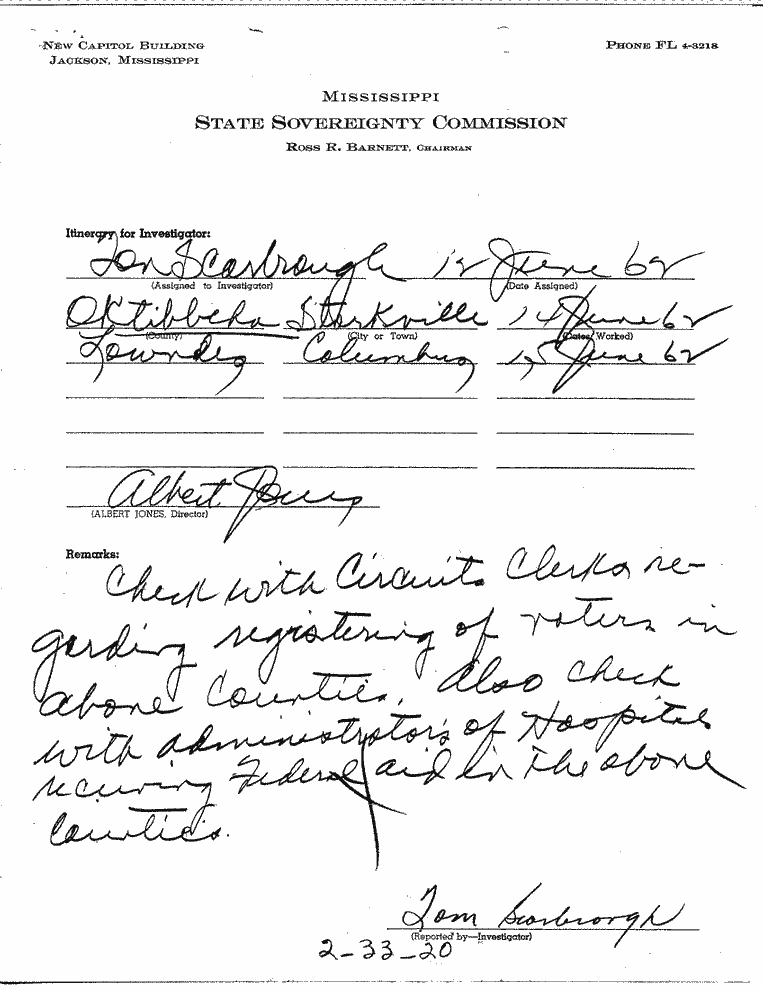 NEW CAPITOL BUILDING
JACKSON, MISSISSIPPI
PHONE FL 4-3218
MISSISSIPPI
STATE SOVEREIGNTY COMMISSION
ROSS R. BARNETT, CHAIRMAN
Itinerary for Investigator:
Tom Scarbrough 12 June 62
(Assigned to Investigator) (Date Assigned)
Oktibbeha Starkville 14 June 62
(County) (City or Town) (Dates Worked)
Lowndes Columbus 15 June 62
Albert Jones
(ALBERT JONES, Director)
Remarks:
Check with Circuit Clerks re-
garding registering of voters in
above Counties. Also check
with administrators of Hospitals
receiving Federal aid in the above
Counties.
Tom Scarbrough
(Reported by—Investigator)
2-33-20